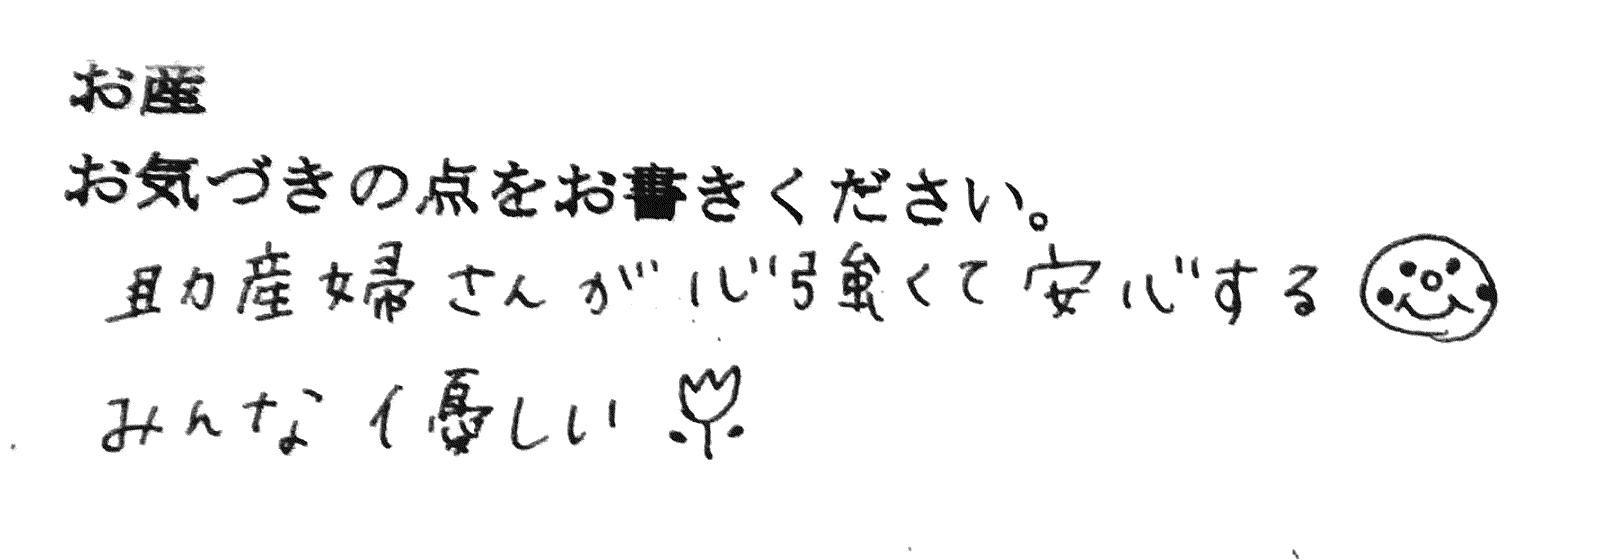 お産
お気づきの点をお書きください。
助産婦さんが心強くて安心する
みんな優しい